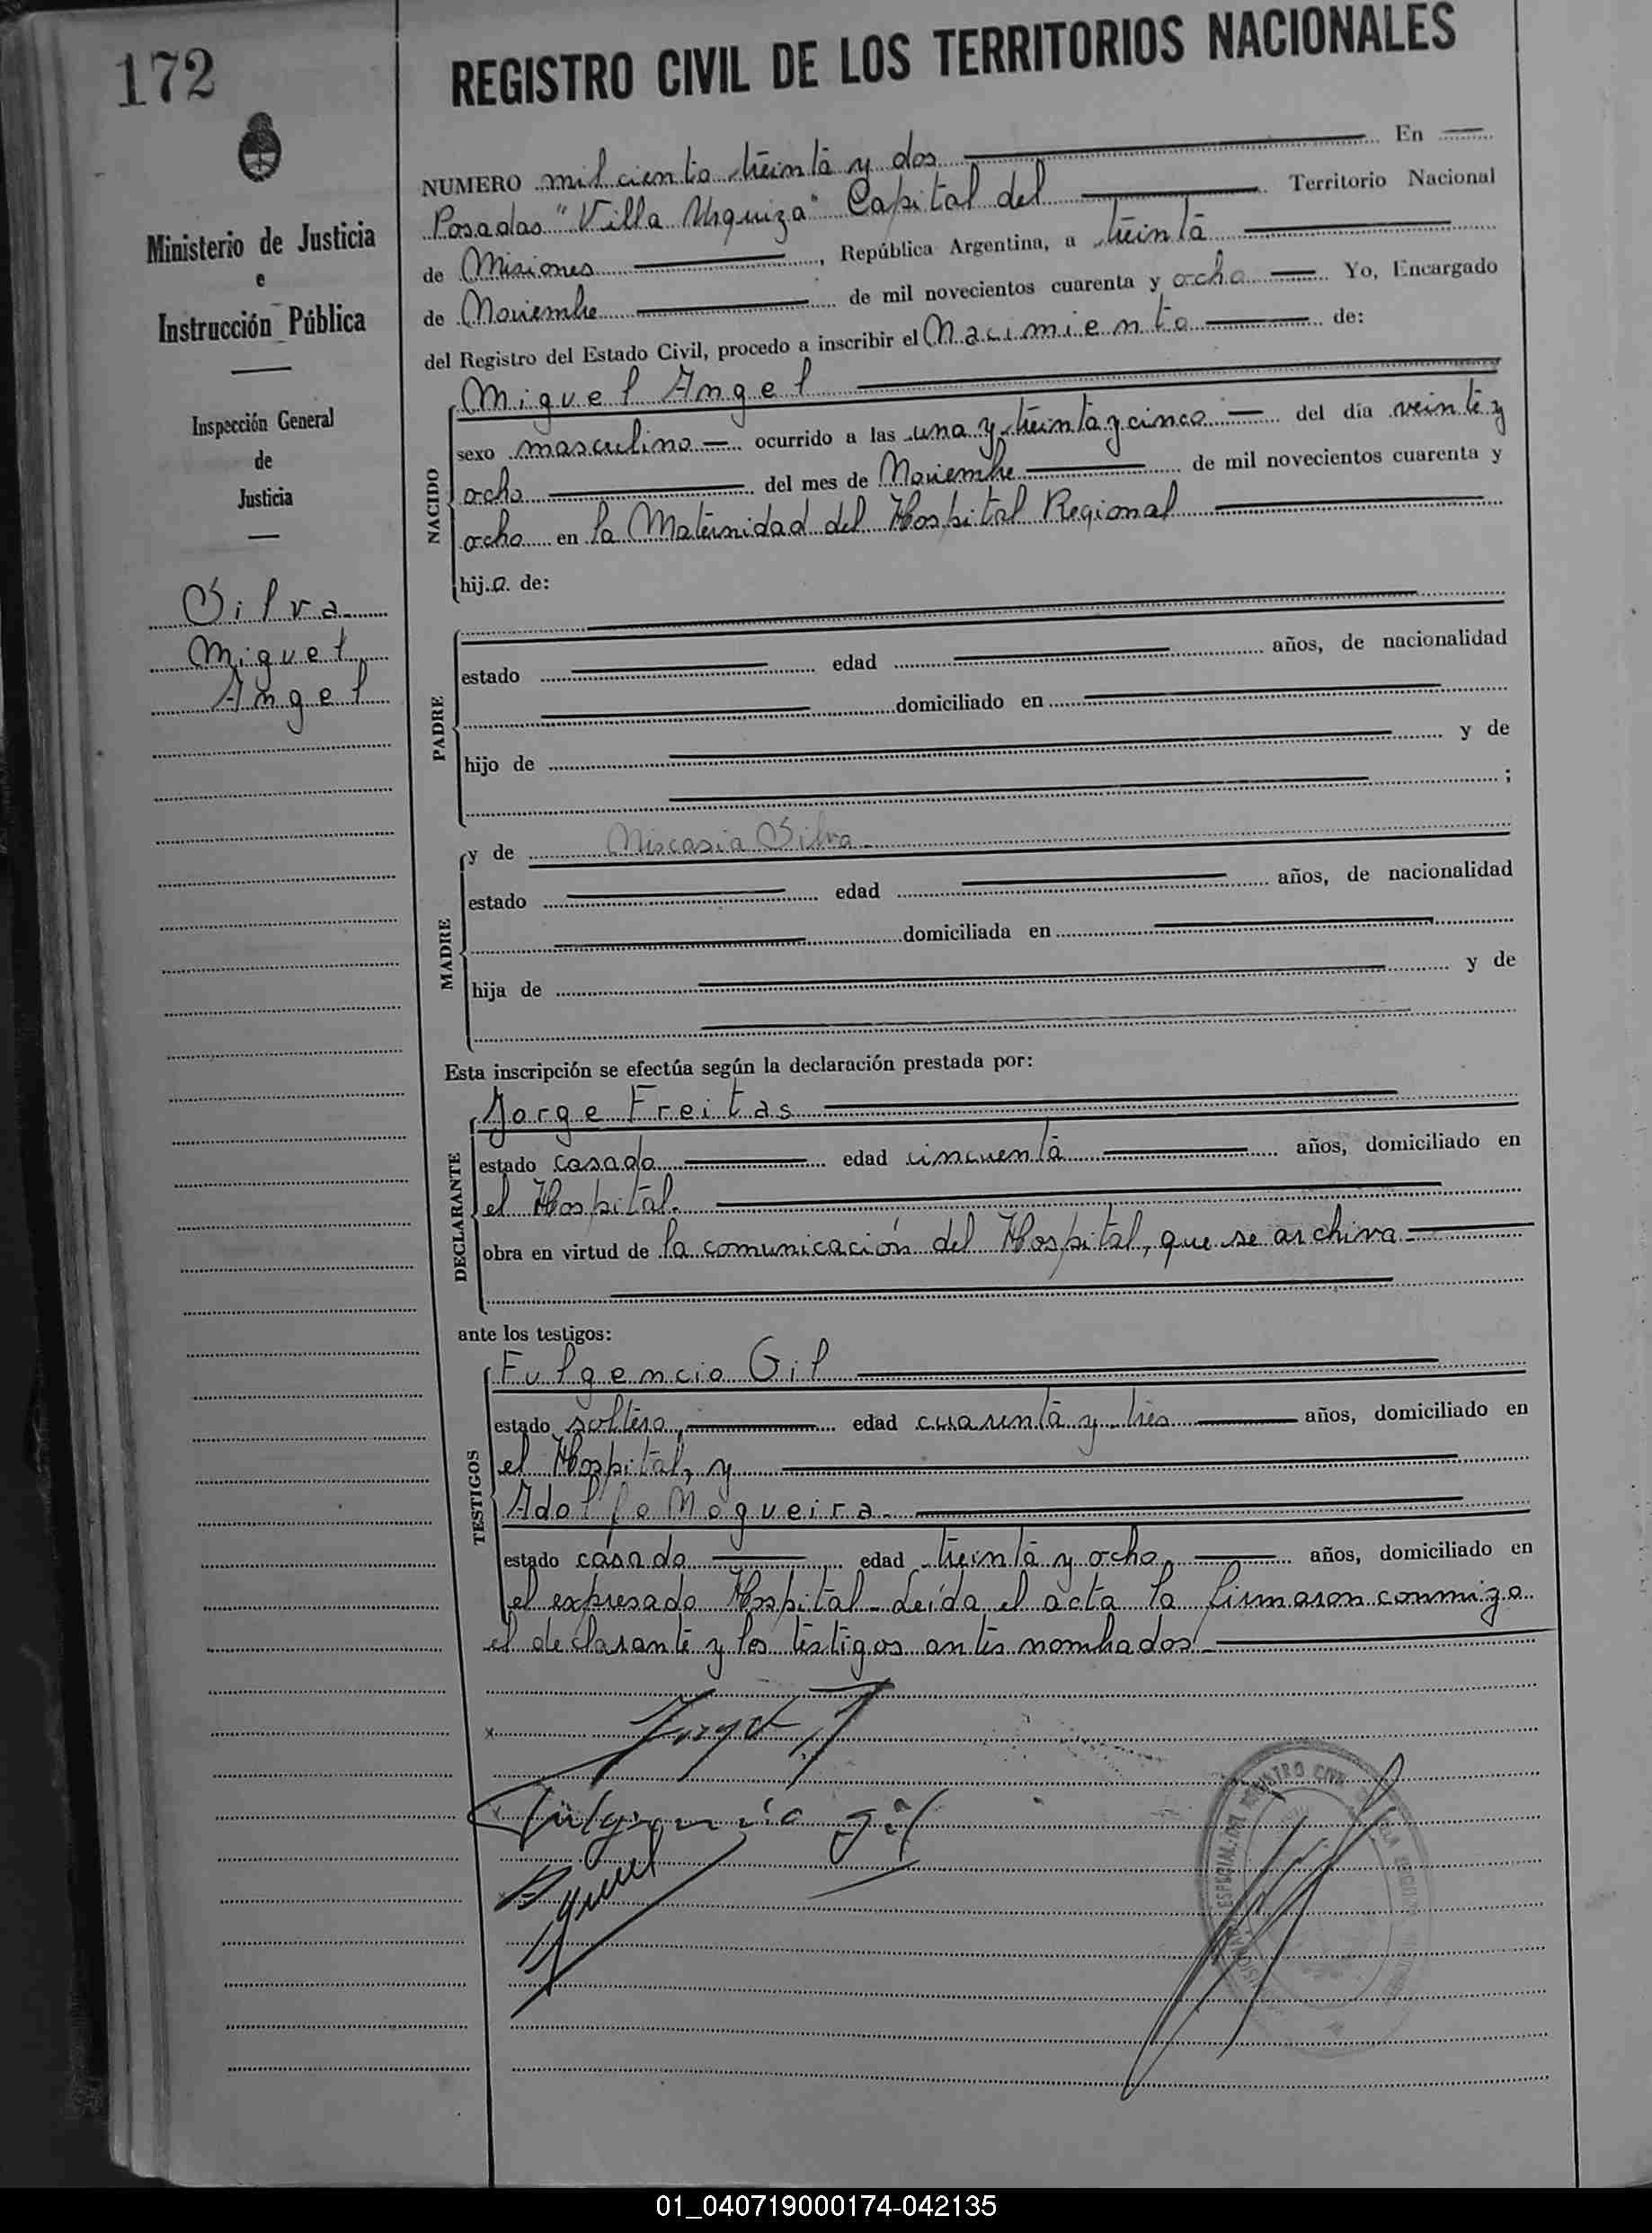 172
REGISTRO CIVIL DE LOS TERRITORIOS NACIONALES
Ministerio de Justicia
e
Instrucción Pública
Inspección General
de
Justicia
Silva
Miguel
Angel
NUMERO mil ciento treinta y dos En
Posadas "Villa Urquiza" Capital del Territorio Nacional
de Misiones, República Argentina, a treinta
de Noviembre de mil novecientos cuarenta y ocho Yo, Encargado
del Registro del Estado Civil, procedo a inscribir el Nacimiento de:
NACIDO
Miguel Angel
sexo masculino ocurrido a las una y treinta y cinco del día veinte y
ocho del mes de Noviembre de mil novecientos cuarenta y
ocho en la Maternidad del Hospital Regional
hijo de:
PADRE
estado edad años, de nacionalidad
domiciliado en
hijo de y de
;
MADRE
y de Silva
estado edad años, de nacionalidad
domiciliada en
hija de y de
Esta inscripción se efectúa según la declaración prestada por:
DECLARANTE
Jorge Freitas
estado casado edad cincuenta años, domiciliado en
el Hospital.
obra en virtud de la comunicación del Hospital, que se archiva
ante los testigos:
TESTIGOS
Fulgencio Gil
estado soltero, edad cuarenta y tres años, domiciliado en
el Hospital, y
Adolfo Nogueira.
estado casado edad treinta y ocho, años, domiciliado en
el expresado Hospital - Leída el acta la firmaron conmigo
el declarante y los testigos antes nombrados.
x Jorge F
x Fulgencio Gil
REGISTRO CIVIL
01_040719000174-042135